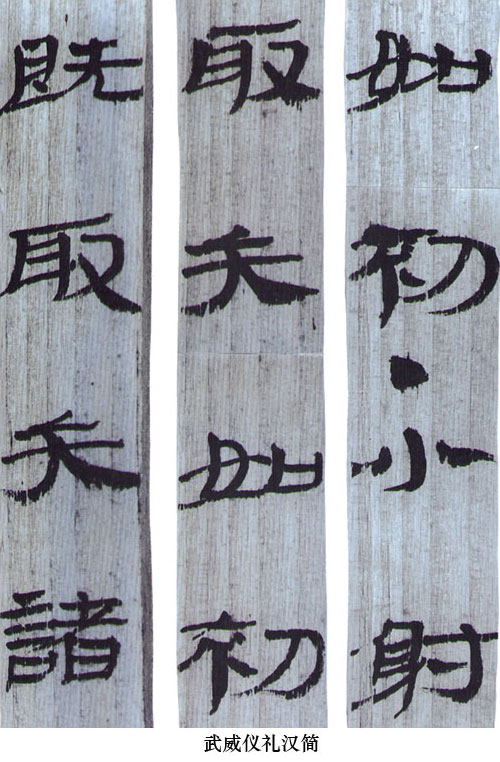 如初•小射
取矢如初
既取矢諸
武威仪礼汉简